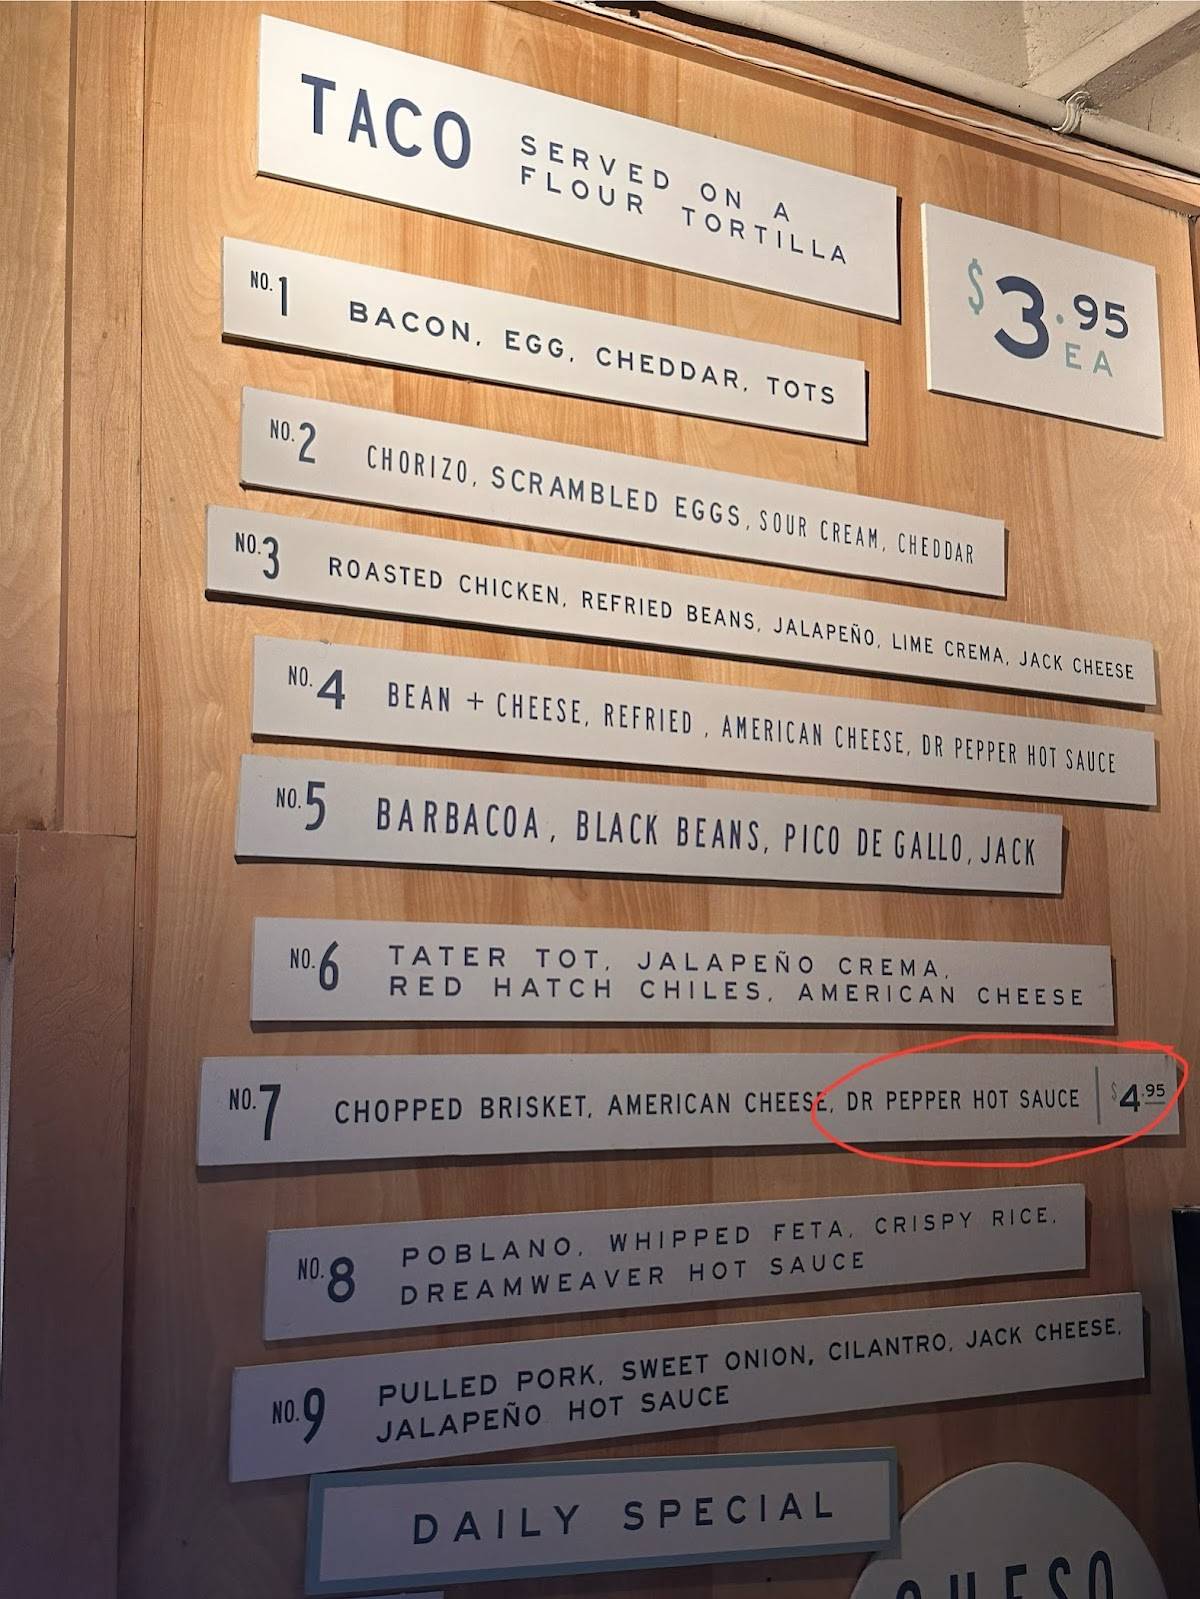 TACO
SERVED ON A
FLOUR TORTILLA
$3.95
EA
NO.1 BACON, EGG, CHEDDAR, TOTS
NO.2 CHORIZO, SCRAMBLED EGGS, SOUR CREAM, CHEDDAR
NO.3 ROASTED CHICKEN, REFRIED BEANS, JALAPEÑO, LIME CREMA, JACK CHEESE
NO.4 BEAN + CHEESE, REFRIED , AMERICAN CHEESE, DR PEPPER HOT SAUCE
NO.5 BARBACOA, BLACK BEANS, PICO DE GALLO, JACK
NO.6 TATER TOT, JALAPEÑO CREMA,
RED HATCH CHILES, AMERICAN CHEESE
NO.7 CHOPPED BRISKET, AMERICAN CHEESE, DR PEPPER HOT SAUCE | $4.95
NO.8 POBLANO, WHIPPED FETA, CRISPY RICE,
DREAMWEAVER HOT SAUCE
NO.9 PULLED PORK, SWEET ONION, CILANTRO, JACK CHEESE,
JALAPEÑO HOT SAUCE
DAILY SPECIAL
QUESO